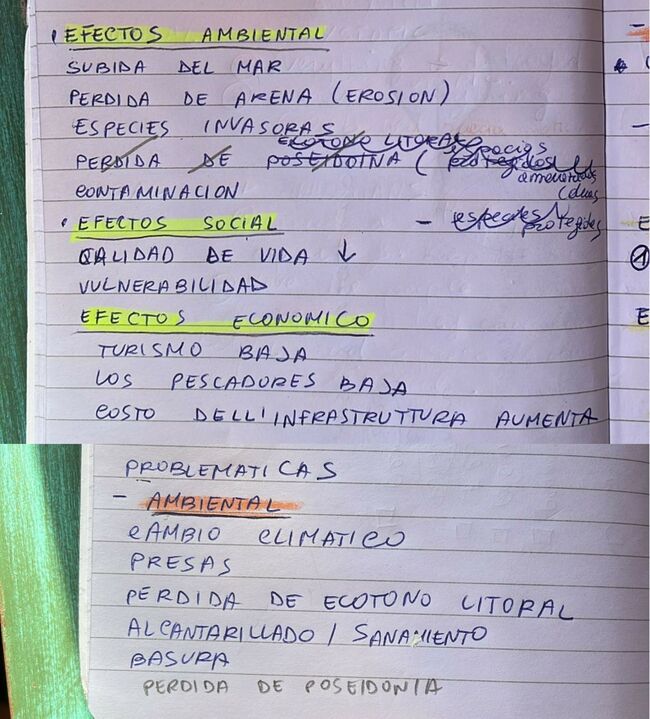 EFECTOS AMBIENTAL
SUBIDA DEL MAR
PERDIDA DE ARENA (EROSION)
ESPECIES INVASORAS
ECOTONO LITORAL especias
PERDIDA DE POSEIDOINA ( protegidos
amenazadas
CONTAMINACION (dunas
EFECTOS SOCIAL - especies protegidas
CALIDAD DE VIDA ↓
VULNERABILIDAD
EFECTOS ECONOMICO
TURISMO BAJA
LOS PESCADORES BAJA
COSTO DELL'INFRASTRUTTURA AUMENTA
PROBLEMATICAS
- AMBIENTAL
CAMBIO CLIMATICO
PRESAS
PERDIDA DE ECOTONO LITORAL
ALCANTARILLADO / SANAMIENTO
BASURA
PERDIDA DE POSEIDONIA